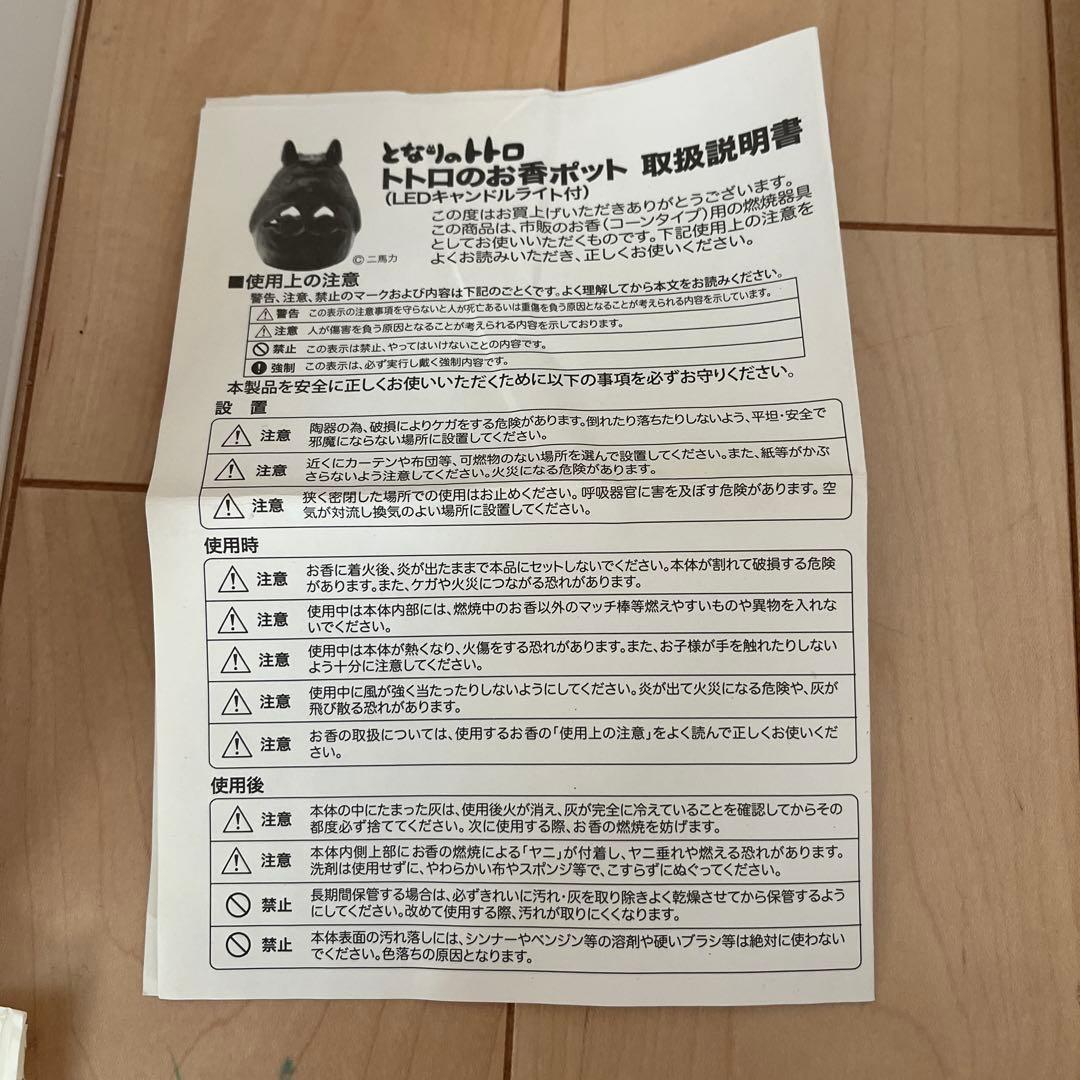 となりのトトロ
トトロのお香ポット 取扱説明書
(LEDキャンドルライト付)
この度はお買上げいただきありがとうございます。
この商品は、市販のお香(コーンタイプ)用の燃焼器具
としてお使いいただくものです。下記使用上の注意を
よくお読みいただき、正しくお使いください。
©二馬力
■使用上の注意
警告、注意、禁止のマークおよび内容は下記のごとくです。よく理解してから本文をお読みください。
警告 この表示の注意事項を守らないと人が死亡あるいは重傷を負う原因となることが考えられる内容を示しています。
注意 人が傷害を負う原因となることが考えられる内容を示しております。
禁止 この表示は禁止、やってはいけないことの内容です。
強制 この表示は、必ず実行し戴く強制内容です。
本製品を安全に正しくお使いいただくために以下の事項を必ずお守りください。
設 置
注意 陶器の為、破損によりケガをする危険があります。倒れたり落ちたりしないよう、平坦・安全で
邪魔にならない場所に設置してください。
注意 近くにカーテンや布団等、可燃物のない場所を選んで設置してください。また、紙等がかぶ
さらないよう注意してください。火災になる危険があります。
注意 狭く密閉した場所での使用はお止めください。呼吸器官に害を及ぼす危険があります。空
気が対流し換気のよい場所に設置してください。
使用時
注意 お香に着火後、炎が出たままで本品にセットしないでください。本体が割れて破損する危険
があります。また、ケガや火災につながる恐れがあります。
注意 使用中は本体内部には、燃焼中のお香以外のマッチ棒等燃えやすいものや異物を入れな
いでください。
注意 使用中は本体が熱くなり、火傷をする恐れがあります。また、お子様が手を触れたりしない
よう十分に注意してください。
注意 使用中に風が強く当たったりしないようにしてください。炎が出て火災になる危険や、灰が
飛び散る恐れがあります。
注意 お香の取扱については、使用するお香の「使用上の注意」をよく読んで正しくお使いくだ
さい。
使用後
注意 本体の中にたまった灰は、使用後火が消え、灰が完全に冷えていることを確認してからその
都度必ず捨ててください。次に使用する際、お香の燃焼を妨げます。
注意 本体内側上部にお香の燃焼による「ヤニ」が付着し、ヤニ垂れや燃える恐れがあります。
洗剤は使用せずに、やわらかい布やスポンジ等で、こすらずにぬぐってください。
禁止 長期間保管する場合は、必ずきれいに汚れ・灰を取り除きよく乾燥させてから保管するよう
にしてください。改めて使用する際、汚れが取りにくくなります。
禁止 本体表面の汚れ落しには、シンナーやベンジン等の溶剤や硬いブラシ等は絶対に使わない
でください。色落ちの原因となります。